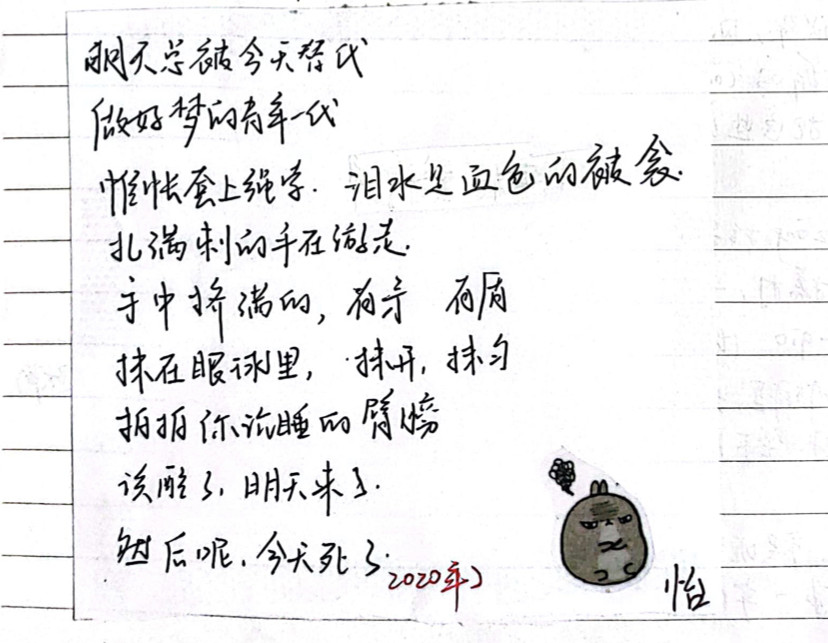 明天总被今天替代
做好梦的青年一代
惟怅套上绳索. 泪水是血色的被衾.
扎满刺的手在游走.
手中挤满的, 有矛 有盾
抹在眼球里, 抹开, 抹匀
拍拍你沉睡的臂膀
该醒了, 明天来了.
然后呢, 今天死了.
2020年
怡